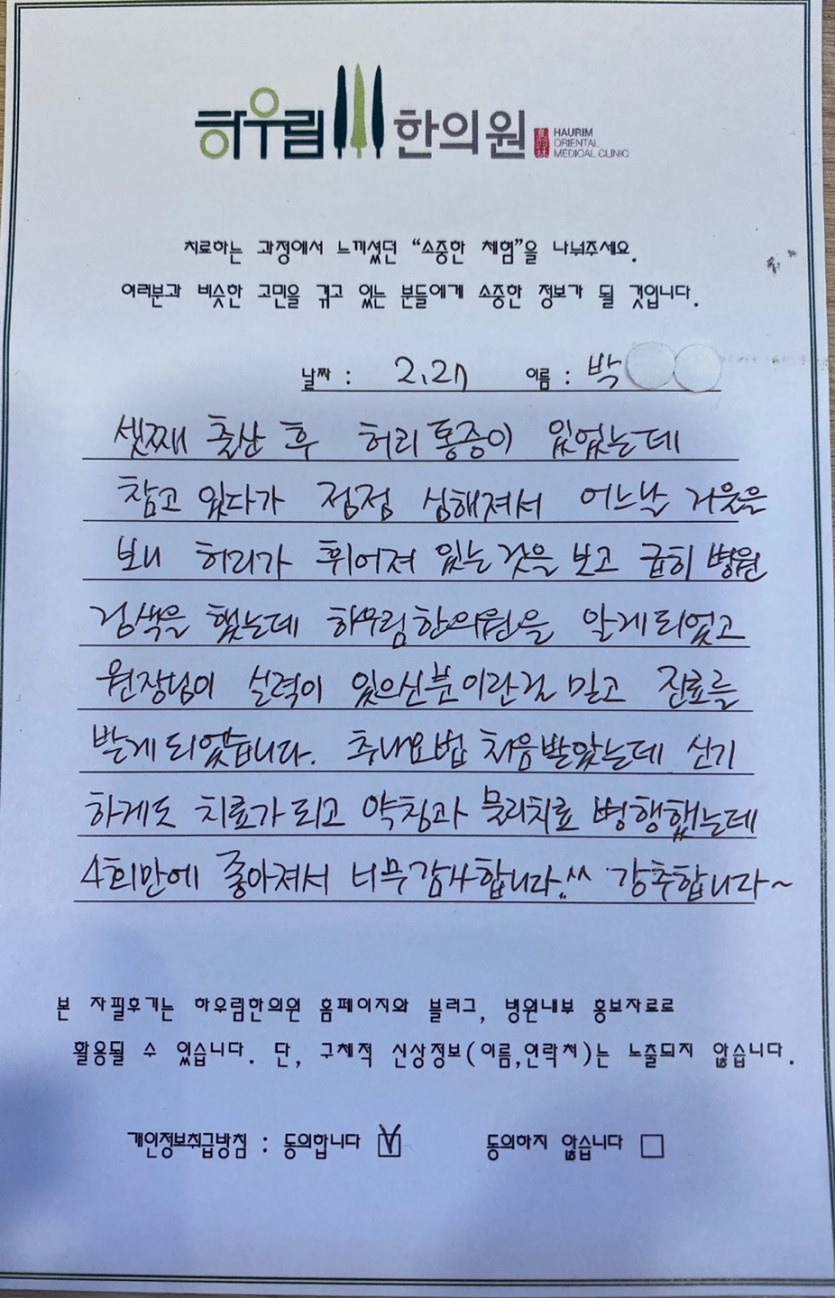 하우림 한의원 HAURIM
ORIENTAL
MEDICAL CLINIC
치료하는 과정에서 느끼셨던 “소중한 체험”을 나눠주세요.
여러분과 비슷한 고민을 겪고 있는 분들에게 소중한 정보가 될 것입니다.
날짜 : 2.27 이름 : 박
셋째 출산 후 허리통증이 있었는데
참고 있다가 점점 심해져서 어느날 거울을
보니 허리가 휘어져 있는것을 보고 급히 병원
검색을 했는데 하우림한의원을 알게되었고
원장님이 실력이 있으신분이란걸 믿고 진료를
받게되었습니다. 추나요법 처음받았는데 신기
하게도 치료가되고 약침과 물리치료 병행했는데
4회만에 좋아져서 너무감사합니다!^^ 강추합니다~
본 자필후기는 하우림한의원 홈페이지와 블러그, 병원내부 홍보자료로
활용될 수 있습니다. 단, 구체적 신상정보(이름,연락처)는 노출되지 않습니다.
개인정보취급방침 : 동의합니다 ☑ 동의하지 않습니다 ☐